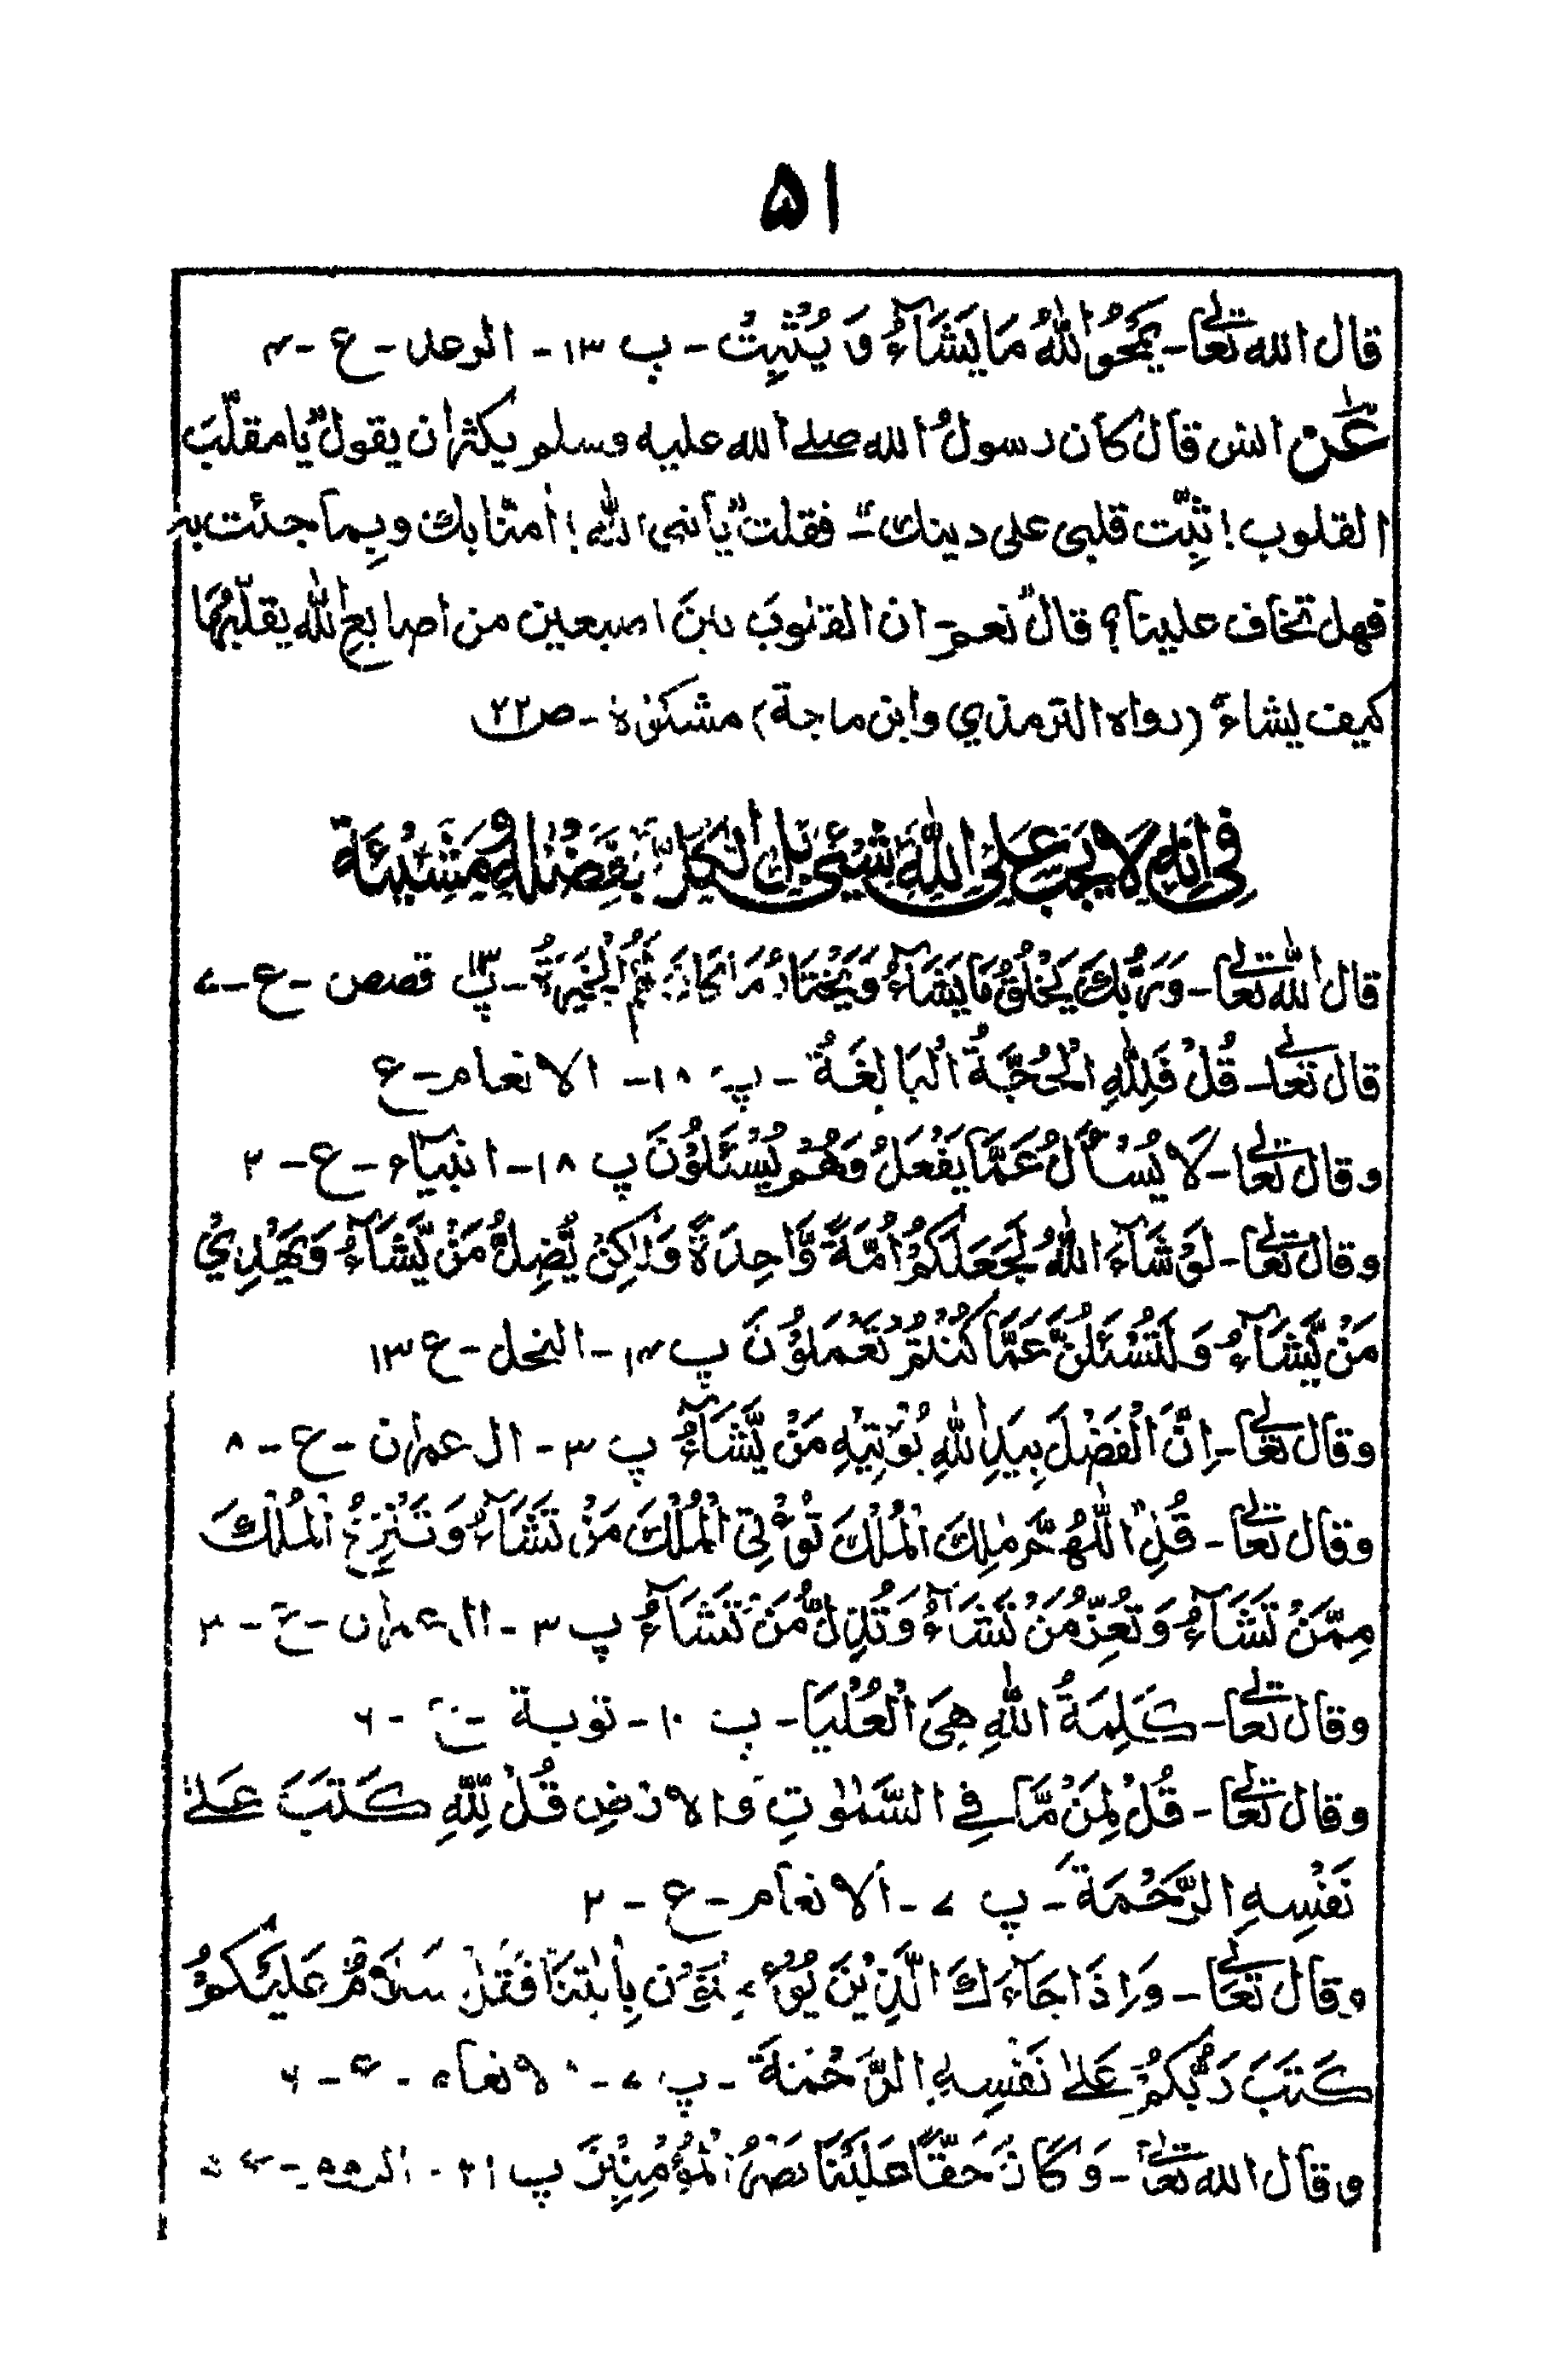 ۵۱
قال الله تعالى - يَمْحُو اللّٰهُ مَا يَشَآءُ وَ يُثْبِتُ - پ ۱۳ - الرعد - ع - ۴
عَنْ انس قال كان رسولُ الله صلے الله عليه وسلم يكثران يقول يا مقلّبَ
القلوب! ثبِّت قلبى على دينك - فقلت يا نبى الله! اٰمنا بك وبِما جئت به
فهل تخاف علينا؟ قال نعم - ان القلوبَ بينَ اصبعين من اصابع الله يقلّبها
كيف يشاء (رواه الترمذي وابن ماجة) مشكوٰة - ص ۲۲
فِى اَنَّهٗ لَا يَجِبُ عَلَى اللّٰهِ شَيْئٌ بَلِ الْكُلُّ بِفَضْلِهٖ وَمَشِيْئَةٍ
قال الله تعالى - وَرَبُّكَ يَخْلُقُ مَا يَشَآءُ وَيَخْتَارُ مَا كَانَ لَهُمُ الْخِيَرَةُ - پ قصص - ع - ۷
قال تعالى - قُلْ فَلِلّٰهِ الْحُجَّةُ الْبَالِغَةُ - پ ۱۸ - الانعام - ع
وقال تعالى - لَا يُسْأَلُ عَمَّا يَفْعَلُ وَهُمْ يُسْئَلُوْنَ پ ۱۸ - انبيآء - ع - ۲
وقال تعالى - لَوْ شَآءَ اللّٰهُ لَجَعَلَكُمْ اُمَّةً وَّاحِدَةً وَلٰكِنْ يُّضِلُّ مَنْ يَّشَآءُ وَيَهْدِيْ
مَنْ يَّشَآءُ وَلَتُسْئَلُنَّ عَمَّا كُنْتُمْ تَعْمَلُوْنَ پ ۱۴ - النحل - ع ۱۳
وقال تعالى - اِنَّ الْفَضْلَ بِيَدِ اللّٰهِ يُؤْتِيْهِ مَنْ يَّشَآءُ پ ۳ - ال عمران - ع - ۸
وقال تعالى - قُلِ اللّٰهُمَّ مٰلِكَ الْمُلْكَ تُؤْتِى الْمُلْكَ مَنْ تَشَآءُ وَتَنْزِعُ الْمُلْكَ
مِمَّنْ تَشَآءُ وَتُعِزُّ مَنْ تَشَآءُ وَتُذِلُّ مَنْ تَشَآءُ پ ۳ - ال عمران - ع - ۳
وقال تعالى - كَلِمَةُ اللّٰهِ هِىَ الْعُلْيَا - پ ۱۰ - توبة - ع - ۶
وقال تعالى - قُلْ لِمَنْ مَّا فِى السَّمٰوٰتِ وَالارْضِ قُلْ لِلّٰهِ كَتَبَ عَلٰى
نَفْسِهِ الرَّحْمَةَ - پ ۷ - الانعام - ع - ۲
وقال تعالى - وَاِذَا جَآءَكَ الَّذِيْنَ يُؤْمِنُوْنَ بِاٰيٰتِنَا فَقُلْ سَلَامٌ عَلَيْكُمْ
كَتَبَ رَبُّكُمْ عَلٰى نَفْسِهِ الرَّحْمَةَ - پ ۷ - الانعام - ع - ۶
وقال الله تعالى - وَكَانَ حَقًّا عَلَيْنَا نَصْرُ الْمُؤْمِنِيْنَ پ ۲۱ - الروم -